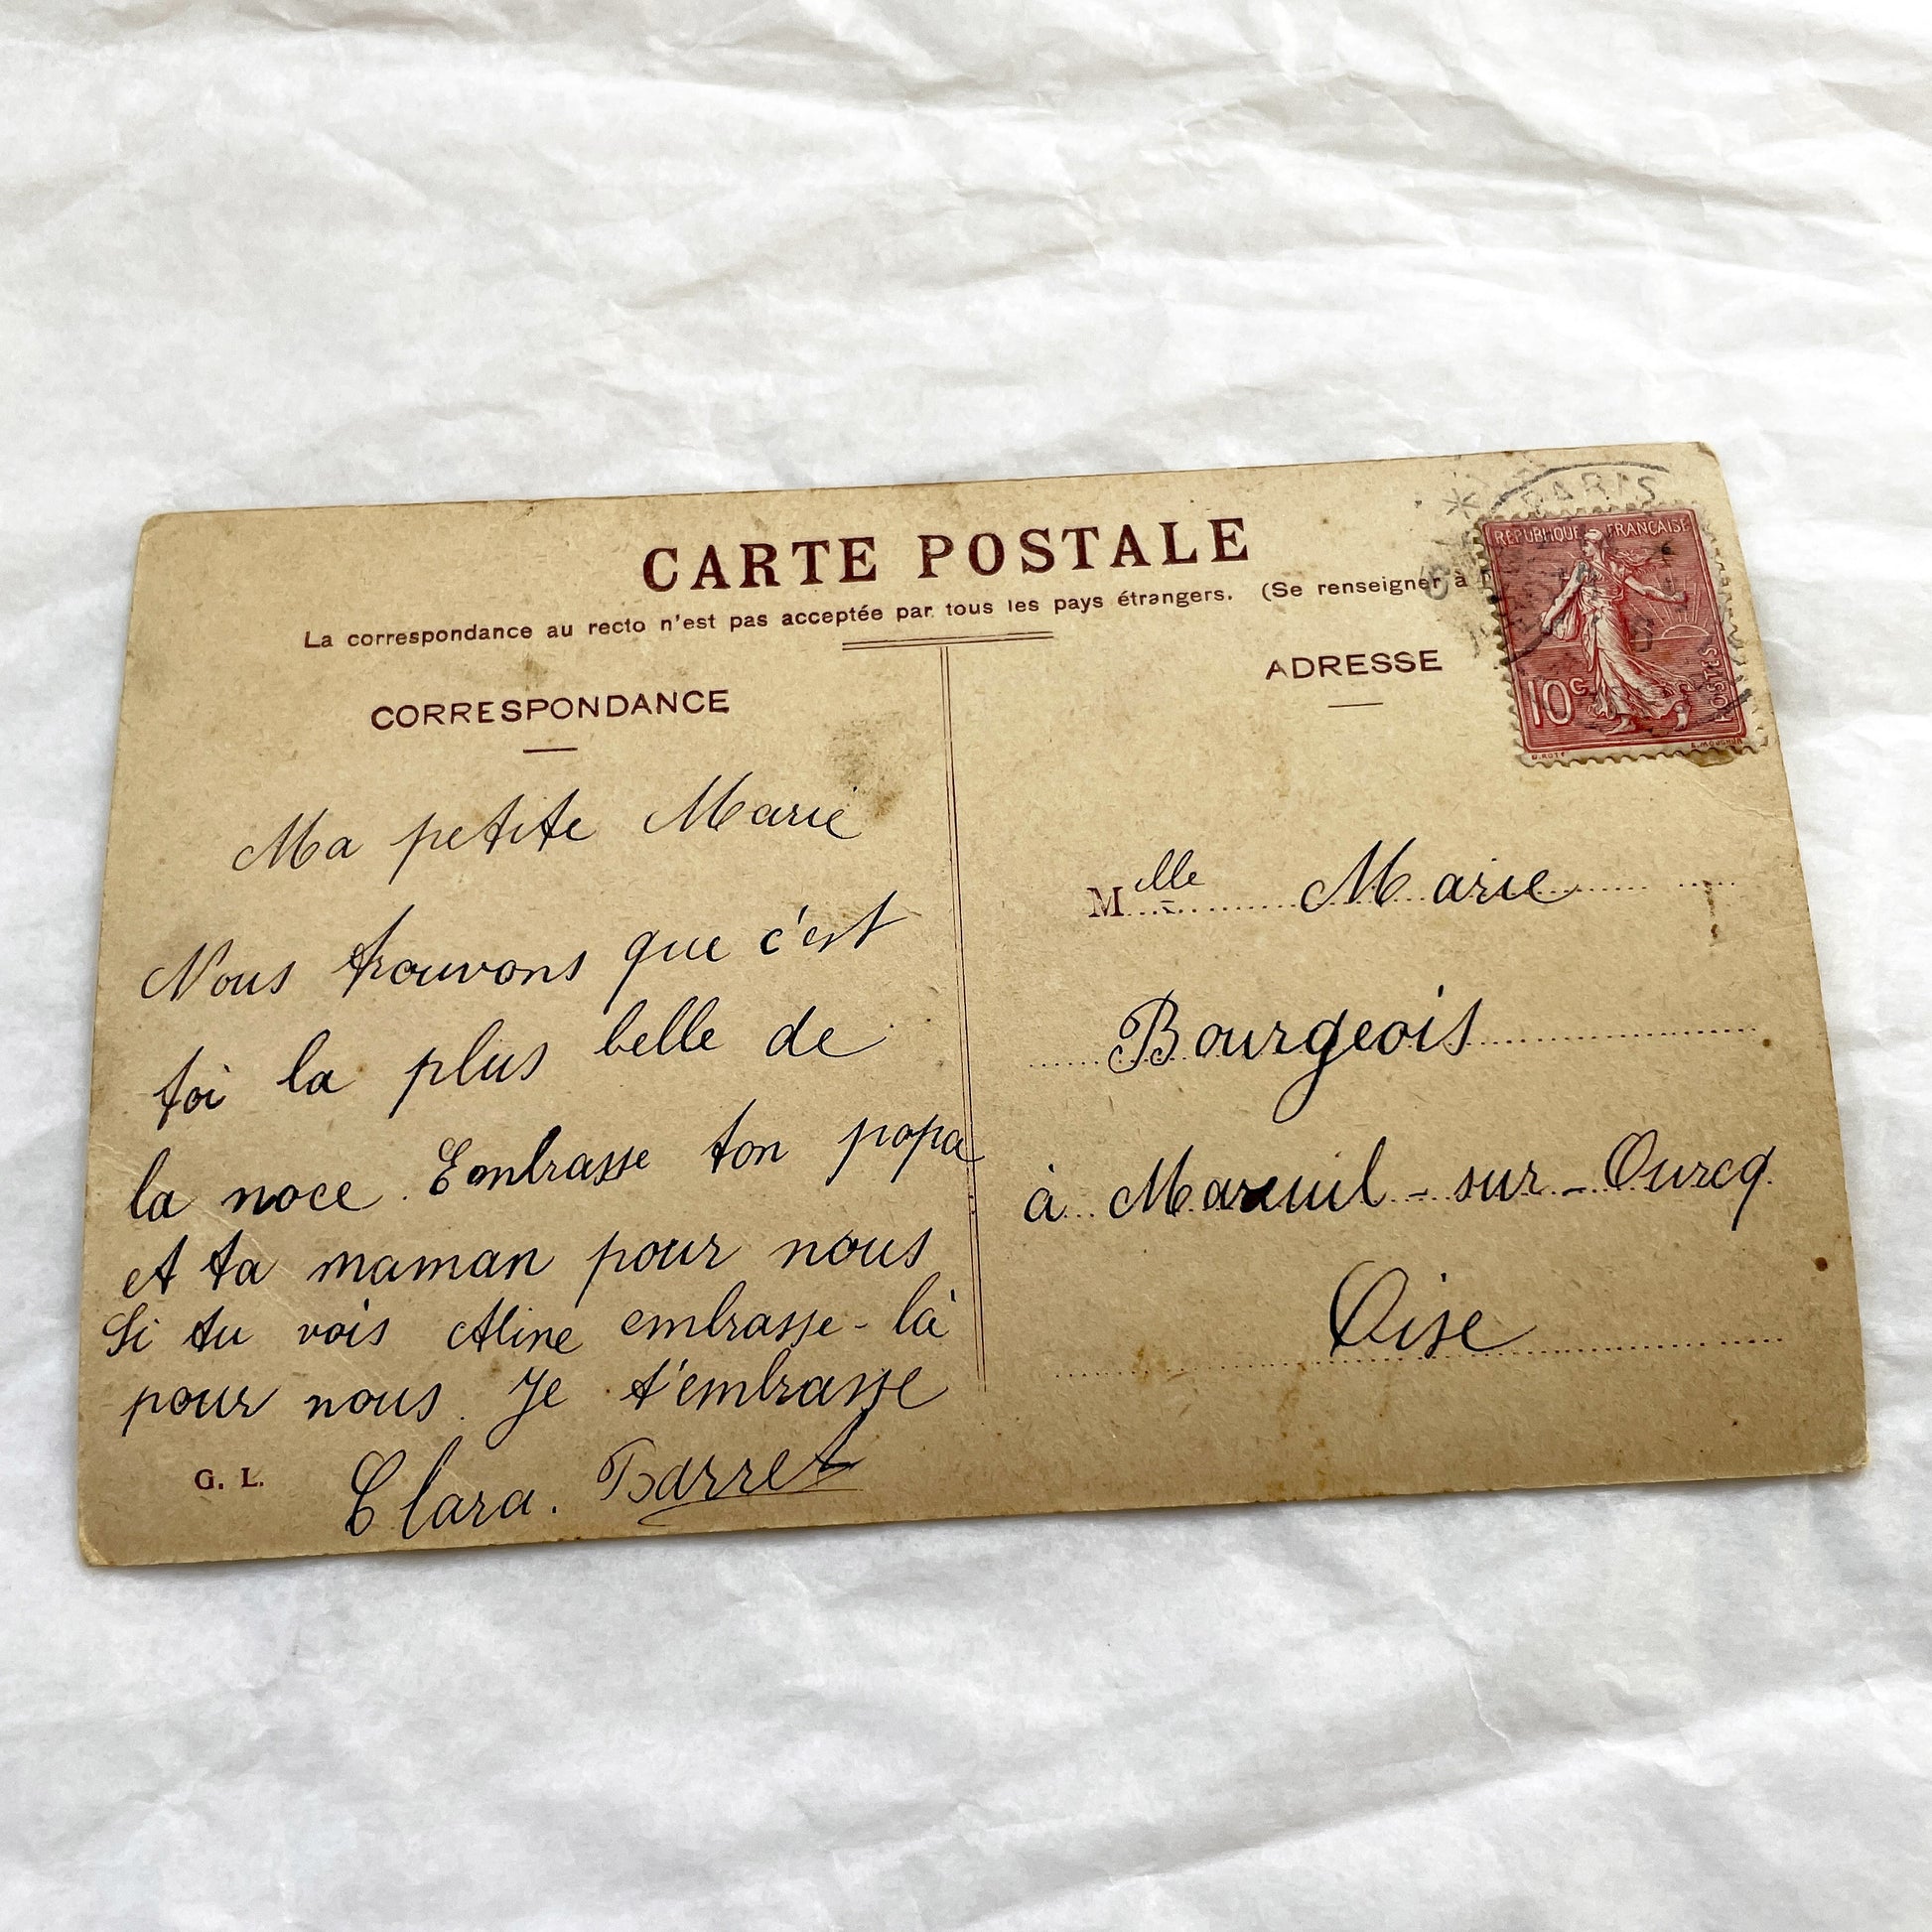 CARTE POSTALE
La correspondance au recto n'est pas acceptée par tous les pays étrangers. (Se renseigner à
CORRESPONDANCE
Ma petite Marie
Nous trouvons que c'est
toi la plus belle de
la noce. Embrasse ton papa
et ta maman pour nous
Si tu vois Aline embrasse-là
pour nous. Je t'embrasse
G. L.
Clara. Barret
ADRESSE
Melle Marie
Bourgeois
à Mareuil-sur-Ourcq
Oise
PARIS
REPUBLIQUE FRANÇAISE
10c
POSTES
O.ROTY
E.MOUCHON